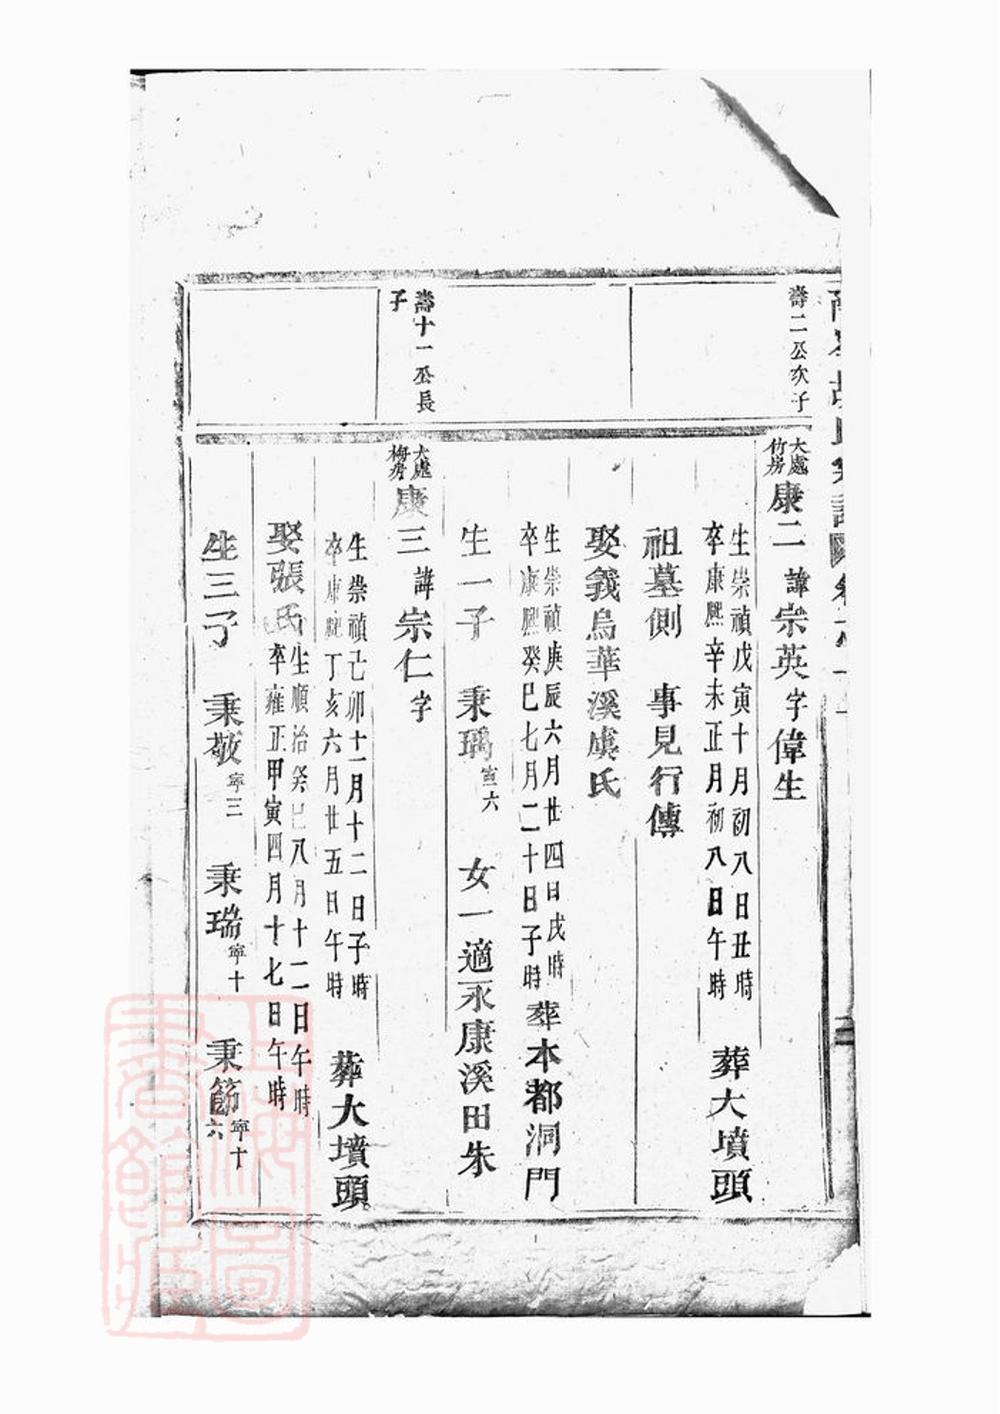 壽二公次子
大處竹房康二諱宗英字偉生
生崇禎戊寅十月初八日丑時
卒康熙辛未正月初八日午時
葬大墳頭
祖墓側 事見行傳
娶義烏華溪虞氏
生崇禎庚辰六月廿四日戌時
卒康熙癸巳七月二十日子時
葬本都洞門
生一子 秉瑀寧六 女一適永康溪田朱
壽十一公長子
大處梅房康三諱宗仁字
生崇禎己卯十一月十二日子時
卒康熙丁亥六月廿五日午時
葬大墳頭
娶張氏
生順治癸巳八月十二日午時
卒雍正甲寅四月十七日午時
生三子 秉敬寧三 秉瑞寧十 秉節寧十六